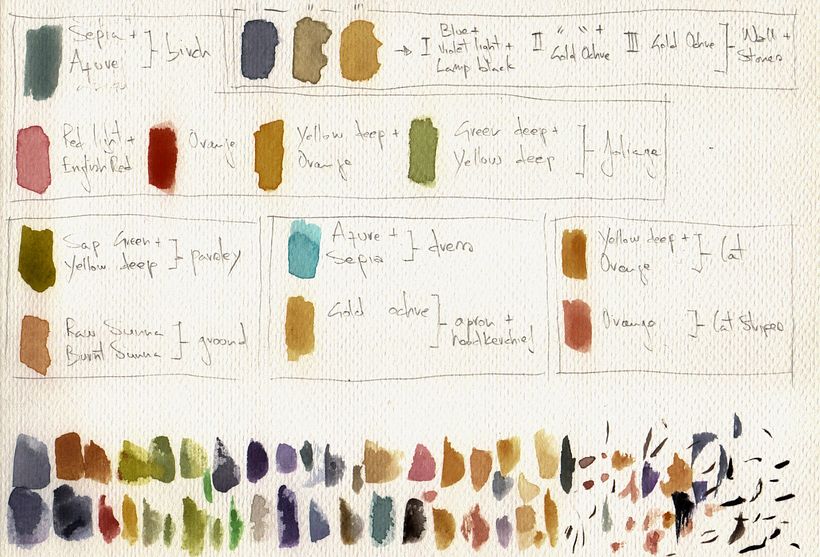 Sepia +
Azure ] birch
I Blue +
Violet light +
Lamp black
II " " +
Gold Ochre
III Gold Ochre
] Wall +
Stones
Red light +
English Red
Orange
Yellow deep +
Orange
Green deep +
Yellow deep
] foliage
Sap Green +
Yellow deep ] parsley
Raw Sienna
Burnt Sienna ] ground
Azure +
Sepia ] dress
Gold ochre
] apron +
handkerchief
Yellow deep +
Orange ] Cat
Orange ] Cat Stripes